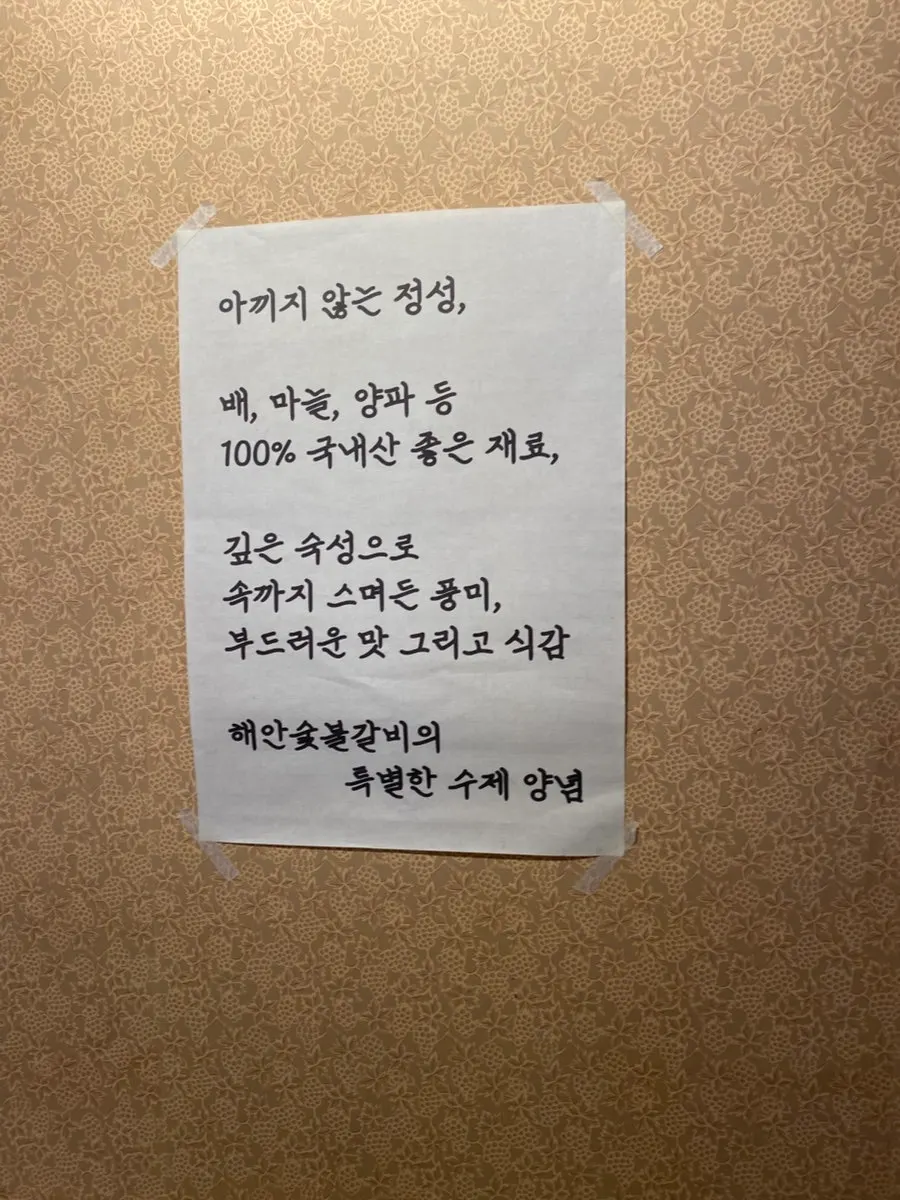 아끼지 않는 정성,
배, 마늘, 양파 등
100% 국내산 좋은 재료,
깊은 숙성으로
속까지 스며든 풍미,
부드러운 맛 그리고 식감
해안숯불갈비의
특별한 수제 양념